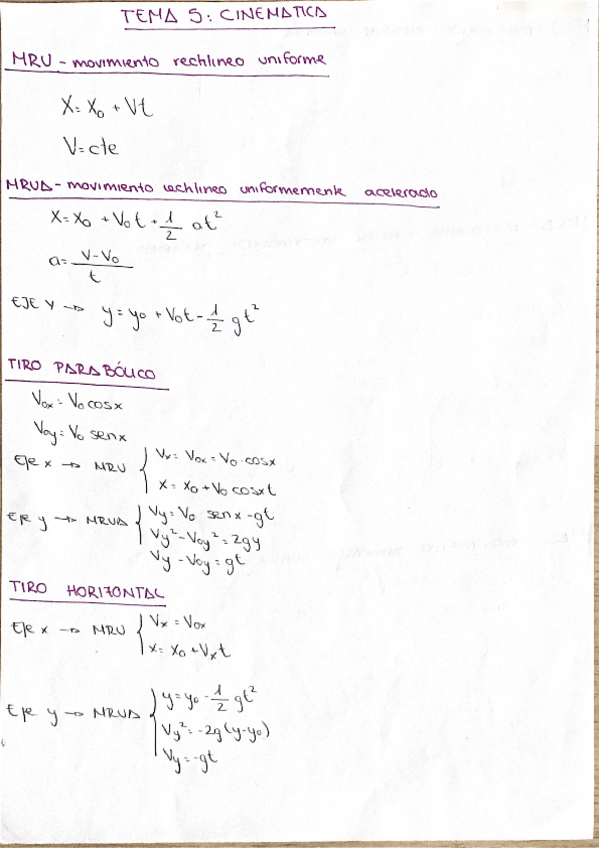 TEMA 5: CINEMATICA
MRU - movimiento rectilineo uniforme
X = X₀ + Vt
V = cte
MRUA - movimiento rectilineo uniformemente acelerado
X = X₀ + V₀t + 1/2 at²
a = V - V₀ / t
EJE Y → y = y₀ + V₀t - 1/2 gt²
TIRO PARABÓLICO
V₀ₓ = V₀ cosx
V₀y = V₀ senx
Eje x → MRU { Vₓ = V₀ₓ = V₀ · cosx
x = x₀ + V₀ cosxt
Eje y → MRUA { Vy = V₀ · senx - gt
Vy² - V₀y² = 2gy
Vy - V₀y = gt
TIRO HORIZONTAL
Eje x → MRU { Vₓ = V₀ₓ
x = x₀ + Vₓt
Eje y → MRUA { y = y₀ - 1/2 gt²
Vy² = -2g(y-y₀)
Vy = -gt